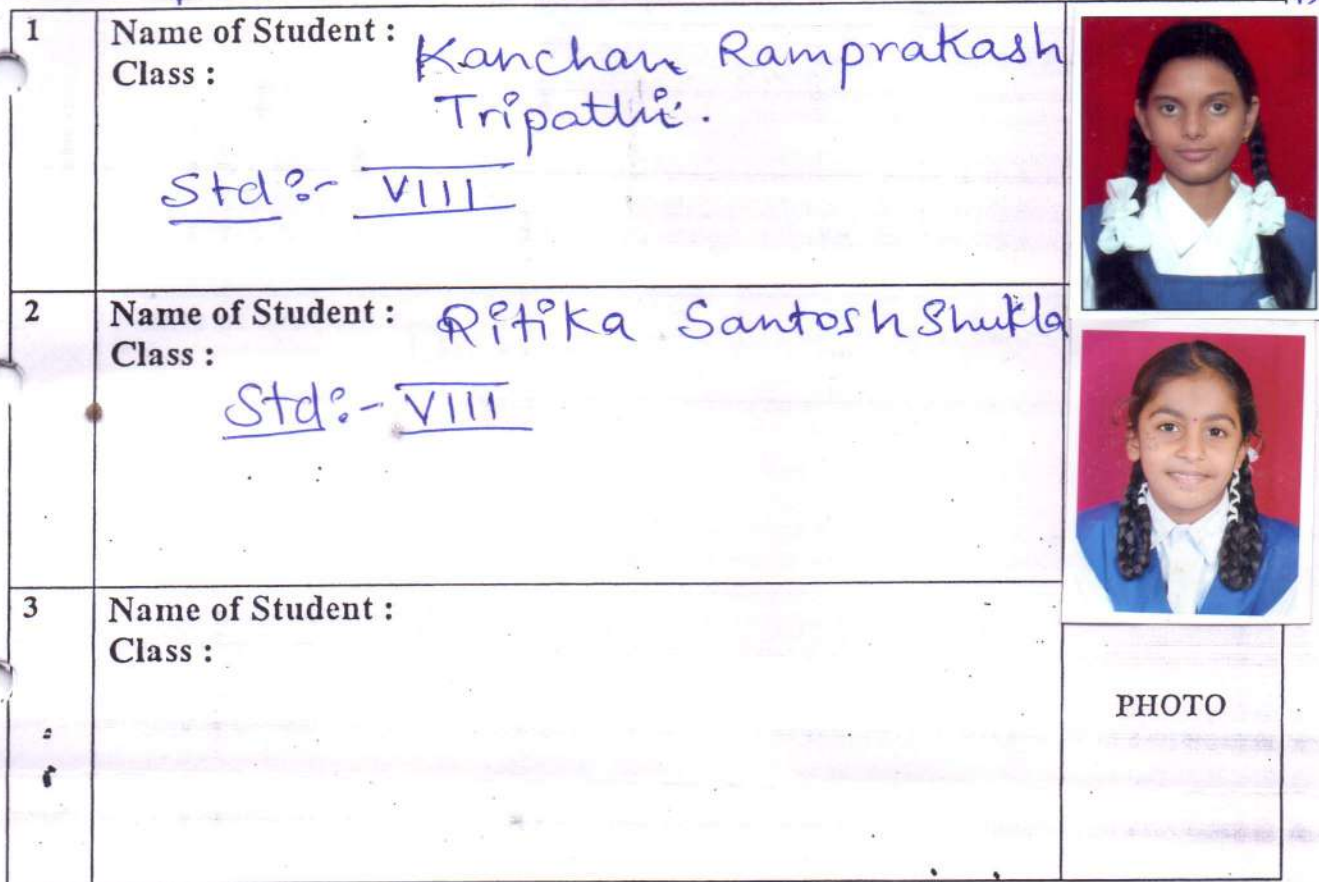 1 Name of Student : Kanchan Ramprakash
Class : Tripathi.
Std :- VIII
2 Name of Student : Ritika Santosh Shukla
Class :
Std :- VIII
3 Name of Student :
Class :
PHOTO